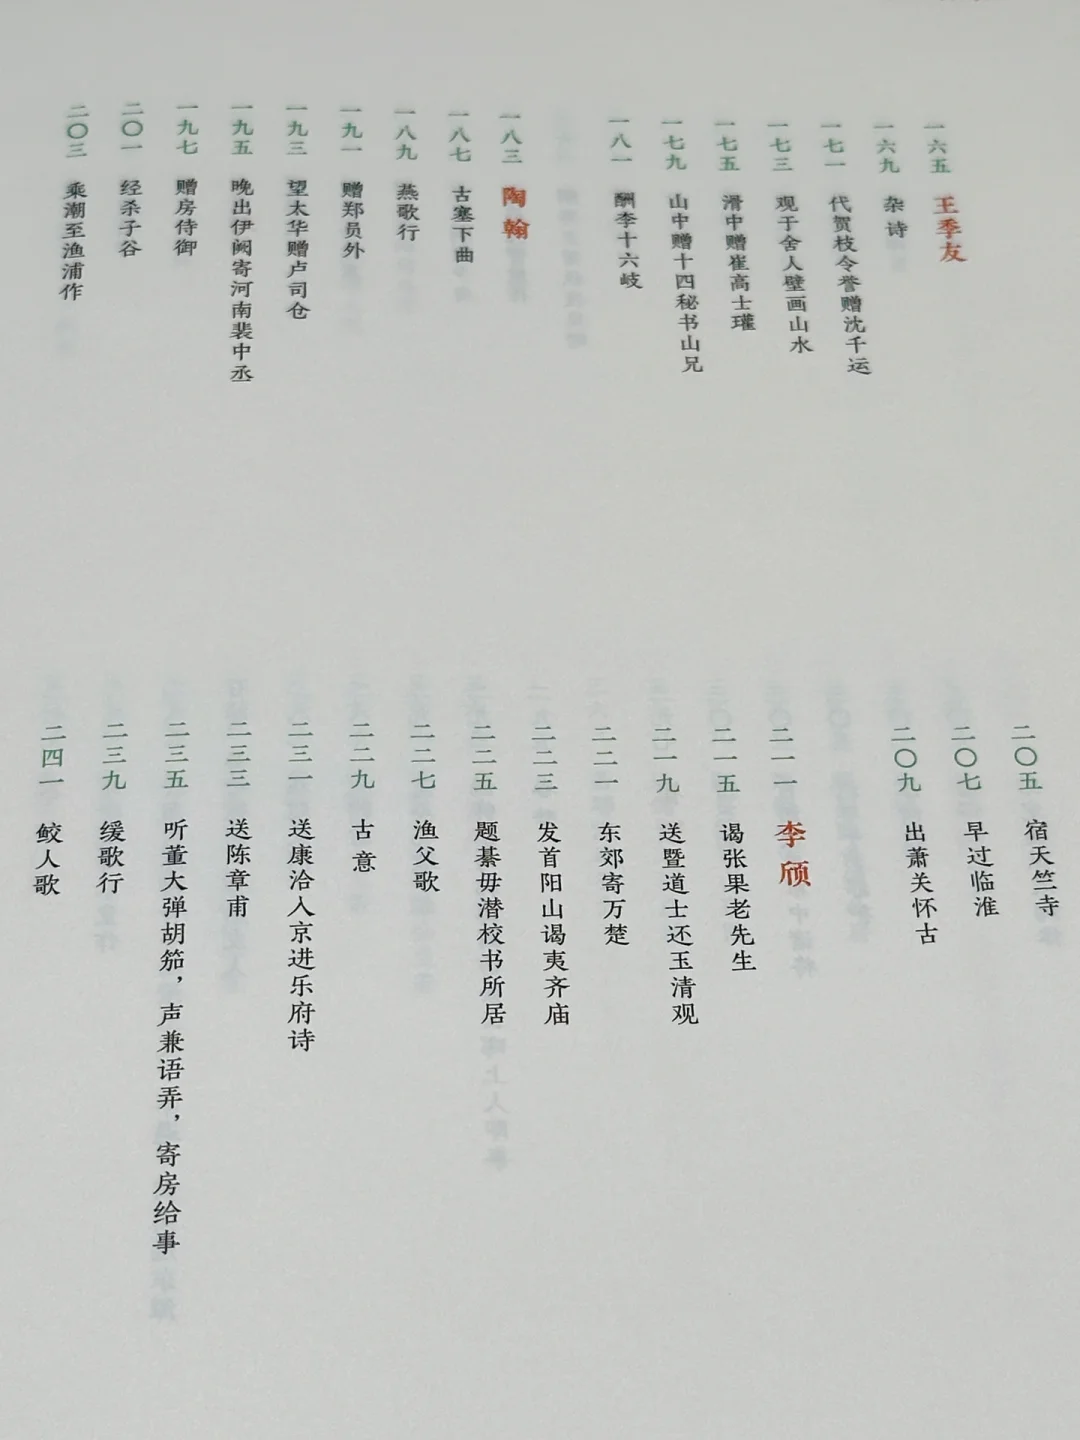 一六五 王季友
一六九 杂诗
一七一 代贺枝令誉赠沈千运
一七三 观于舍人壁画山水
一七五 滑中赠崔高士瓘
一七九 山中赠十四秘书山兄
一八一 酬李十六岐
一八三 陶翰
一八七 古塞下曲
一八九 燕歌行
一九一 赠郑员外
一九三 望太华赠卢司仓
一九五 晚出伊阙寄河南裴中丞
一九七 赠房侍御
二〇一 经杀子谷
二〇三 乘潮至渔浦作
二〇五 宿天竺寺
二〇七 早过临淮
二〇九 出萧关怀古
二一一 李颀
二一五 谒张果老先生
二一九 送暨道士还玉清观
二二一 东郊寄万楚
二二三 发首阳山谒夷齐庙
二二五 题綦毋潜校书所居
二二七 渔父歌
二二九 古意
二三一 送康洽入京进乐府诗
二三三 送陈章甫
二三五 听董大弹胡笳，声兼语弄，寄房给事
二三九 缓歌行
二四一 鲛人歌